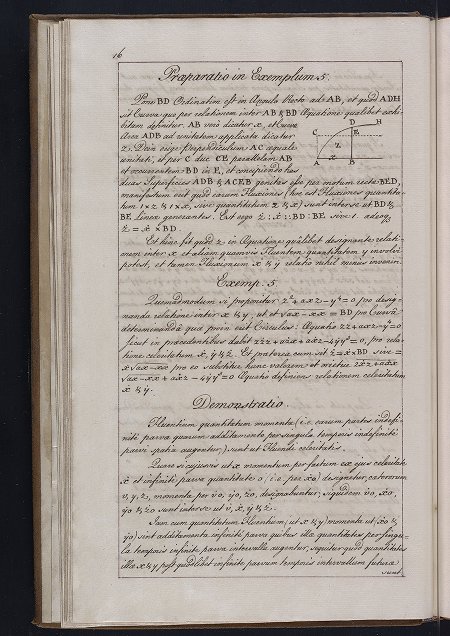 16
Præparatio in Exemplum 5.
Pone BD Ordinatim esse in Angulo Recto ad AB, et quod ADH
sit Curva quæ per relationem inter AB & BD Æquatione qualibet exhi-
bitam definitur. AB vero dicatur x, et Curvæ
Area ADB ad unitatem applicata dicatur
z. Dein erige Perpendiculum AC æquale
unitati, et per C duc CE parallelam AB
et occurrentem BD in E, et concipiendo has
duas Superficies ADB & ACEB genitas esse per motum rectæ BED,
manifestum erit quod earum Fluxiones (hoc est Fluxiones quantita-
tum 1 × z & 1 × x, sive quantitatum z & x) sunt inter se ut BD &
BE Lineæ generantes. Est ergo ż : ẋ :: BD : BE sive 1. adeoq,
ż = ẋ × BD.
Et hinc fit quod z in Æquatione qualibet designante relati-
onem inter x et aliam quamvis Fluentem quantitatem y involvi
potest, et tamen Fluxionum ẋ & ẏ relatio nihil minus inveniri.
C D H
E
Z
A X B
Exemp. 5.
Quemadmodum si proponitur z² + axz − y⁴ = 0 pro desig-
nanda relatione inter x & y, ut et √ax − xx = BD pro Curvâ
determinandâ quæ proin erit Circulus: Æquatio zz + axz − y⁴ = 0
sicut in præcedentibus dabit 2żz + ażx + aẋz − 4ẏy³ = 0, pro rela-
tione celeritatum ẋ, ẏ & ż. Et præterea cum sit ż = ẋ × BD sive =
ẋ√ax − xx pro eo substitue hunc valorem et orietur 2ẋz + aẋx
√ax − xx + aẋz − 4ẏy³ = 0 Æquatio definiens relationem celeritatum
ẋ & ẏ.
Demonstratio.
Fluentium quantitatum momenta (i.e. earum partes indefi-
nitè parvæ quarum additamento per singula temporis indefinitè
parvi spatia augentur,) sunt ut Fluendi celeritates.
Quare si cujusvis ut x momentum per factum ex ejus celeritate
ẋ et infinitè parva quantitate o, (i.e. per ẋo) designetur, cæterorum
v, y, z, momenta per v̇o, ẏo, żo, designabuntur, siquidem v̇o, ẋo,
ẏo & żo sunt inter se ut v̇, ẋ, ẏ & ż.
Jam cum quantitatum Fluentium (ut x & y) momenta ut (ẋo &
ẏo) sint additamenta infinitè parva quibus illæ quantitates per singu-
la temporis infinite parva intervalla augentur, sequitur quod quantitates
illæ x & y, post quodlibet infinitè parvum temporis intervallum futuræ
sunt